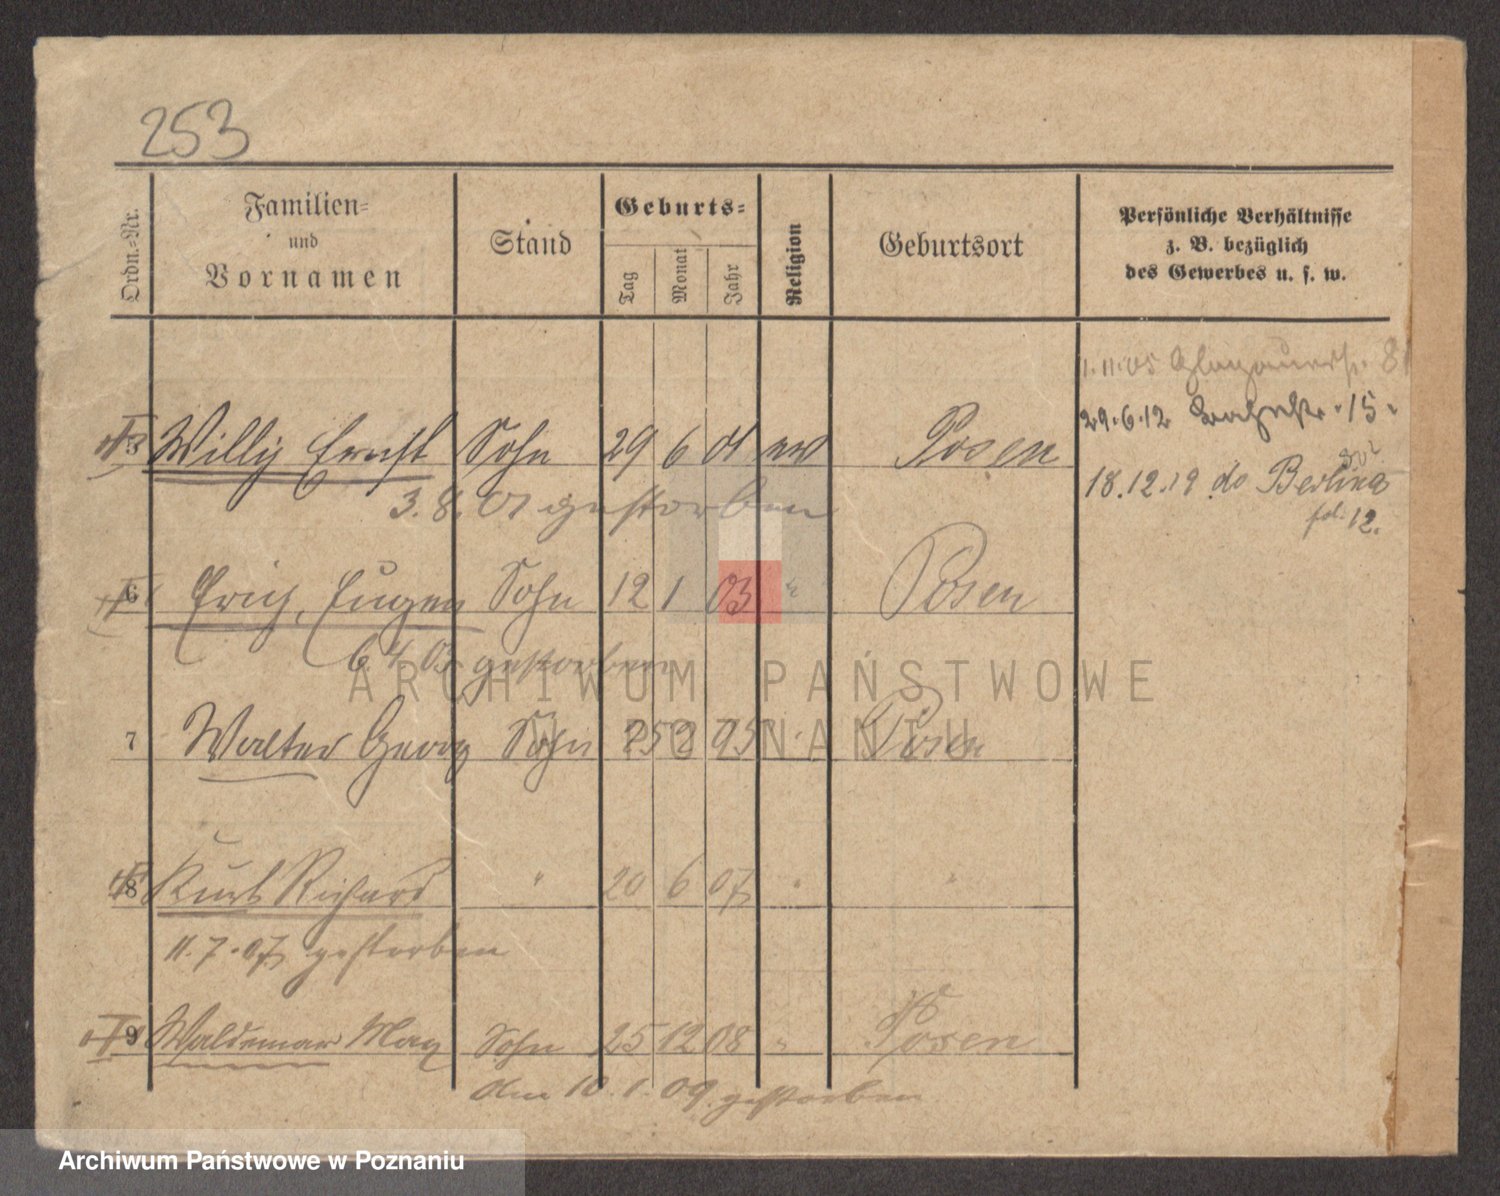 253
Ordn.-Nr.
Familien-
und
Vornamen
Stand
Geburts-
Tag
Monat
Jahr
Religion
Geburtsort
Persönliche Verhältnisse
z. B. bezüglich
des Gewerbes u. s. w.
1.11.05 Glogauerstr. 81
29.6.12 15
18.12.19 do Berlin
fol. 12.
5 Willy Ernst Sohn 29 6 01 ev Posen
3.8.01 gestorben
6 Erich, Eugen Sohn 12 1 03 " Posen
6 4 03 gestorben
7 Walter Georg Sohn 25 2 95 " Posen
8 Kurt Richard " 20 6 07 " "
11.7.07 gestorben
9 Waldemar Max Sohn 25 12 08 " Posen
den 10.1.09 gestorben
ARCHIWUM PAŃSTWOWE
W POZNANIU
Archiwum Państwowe w Poznaniu